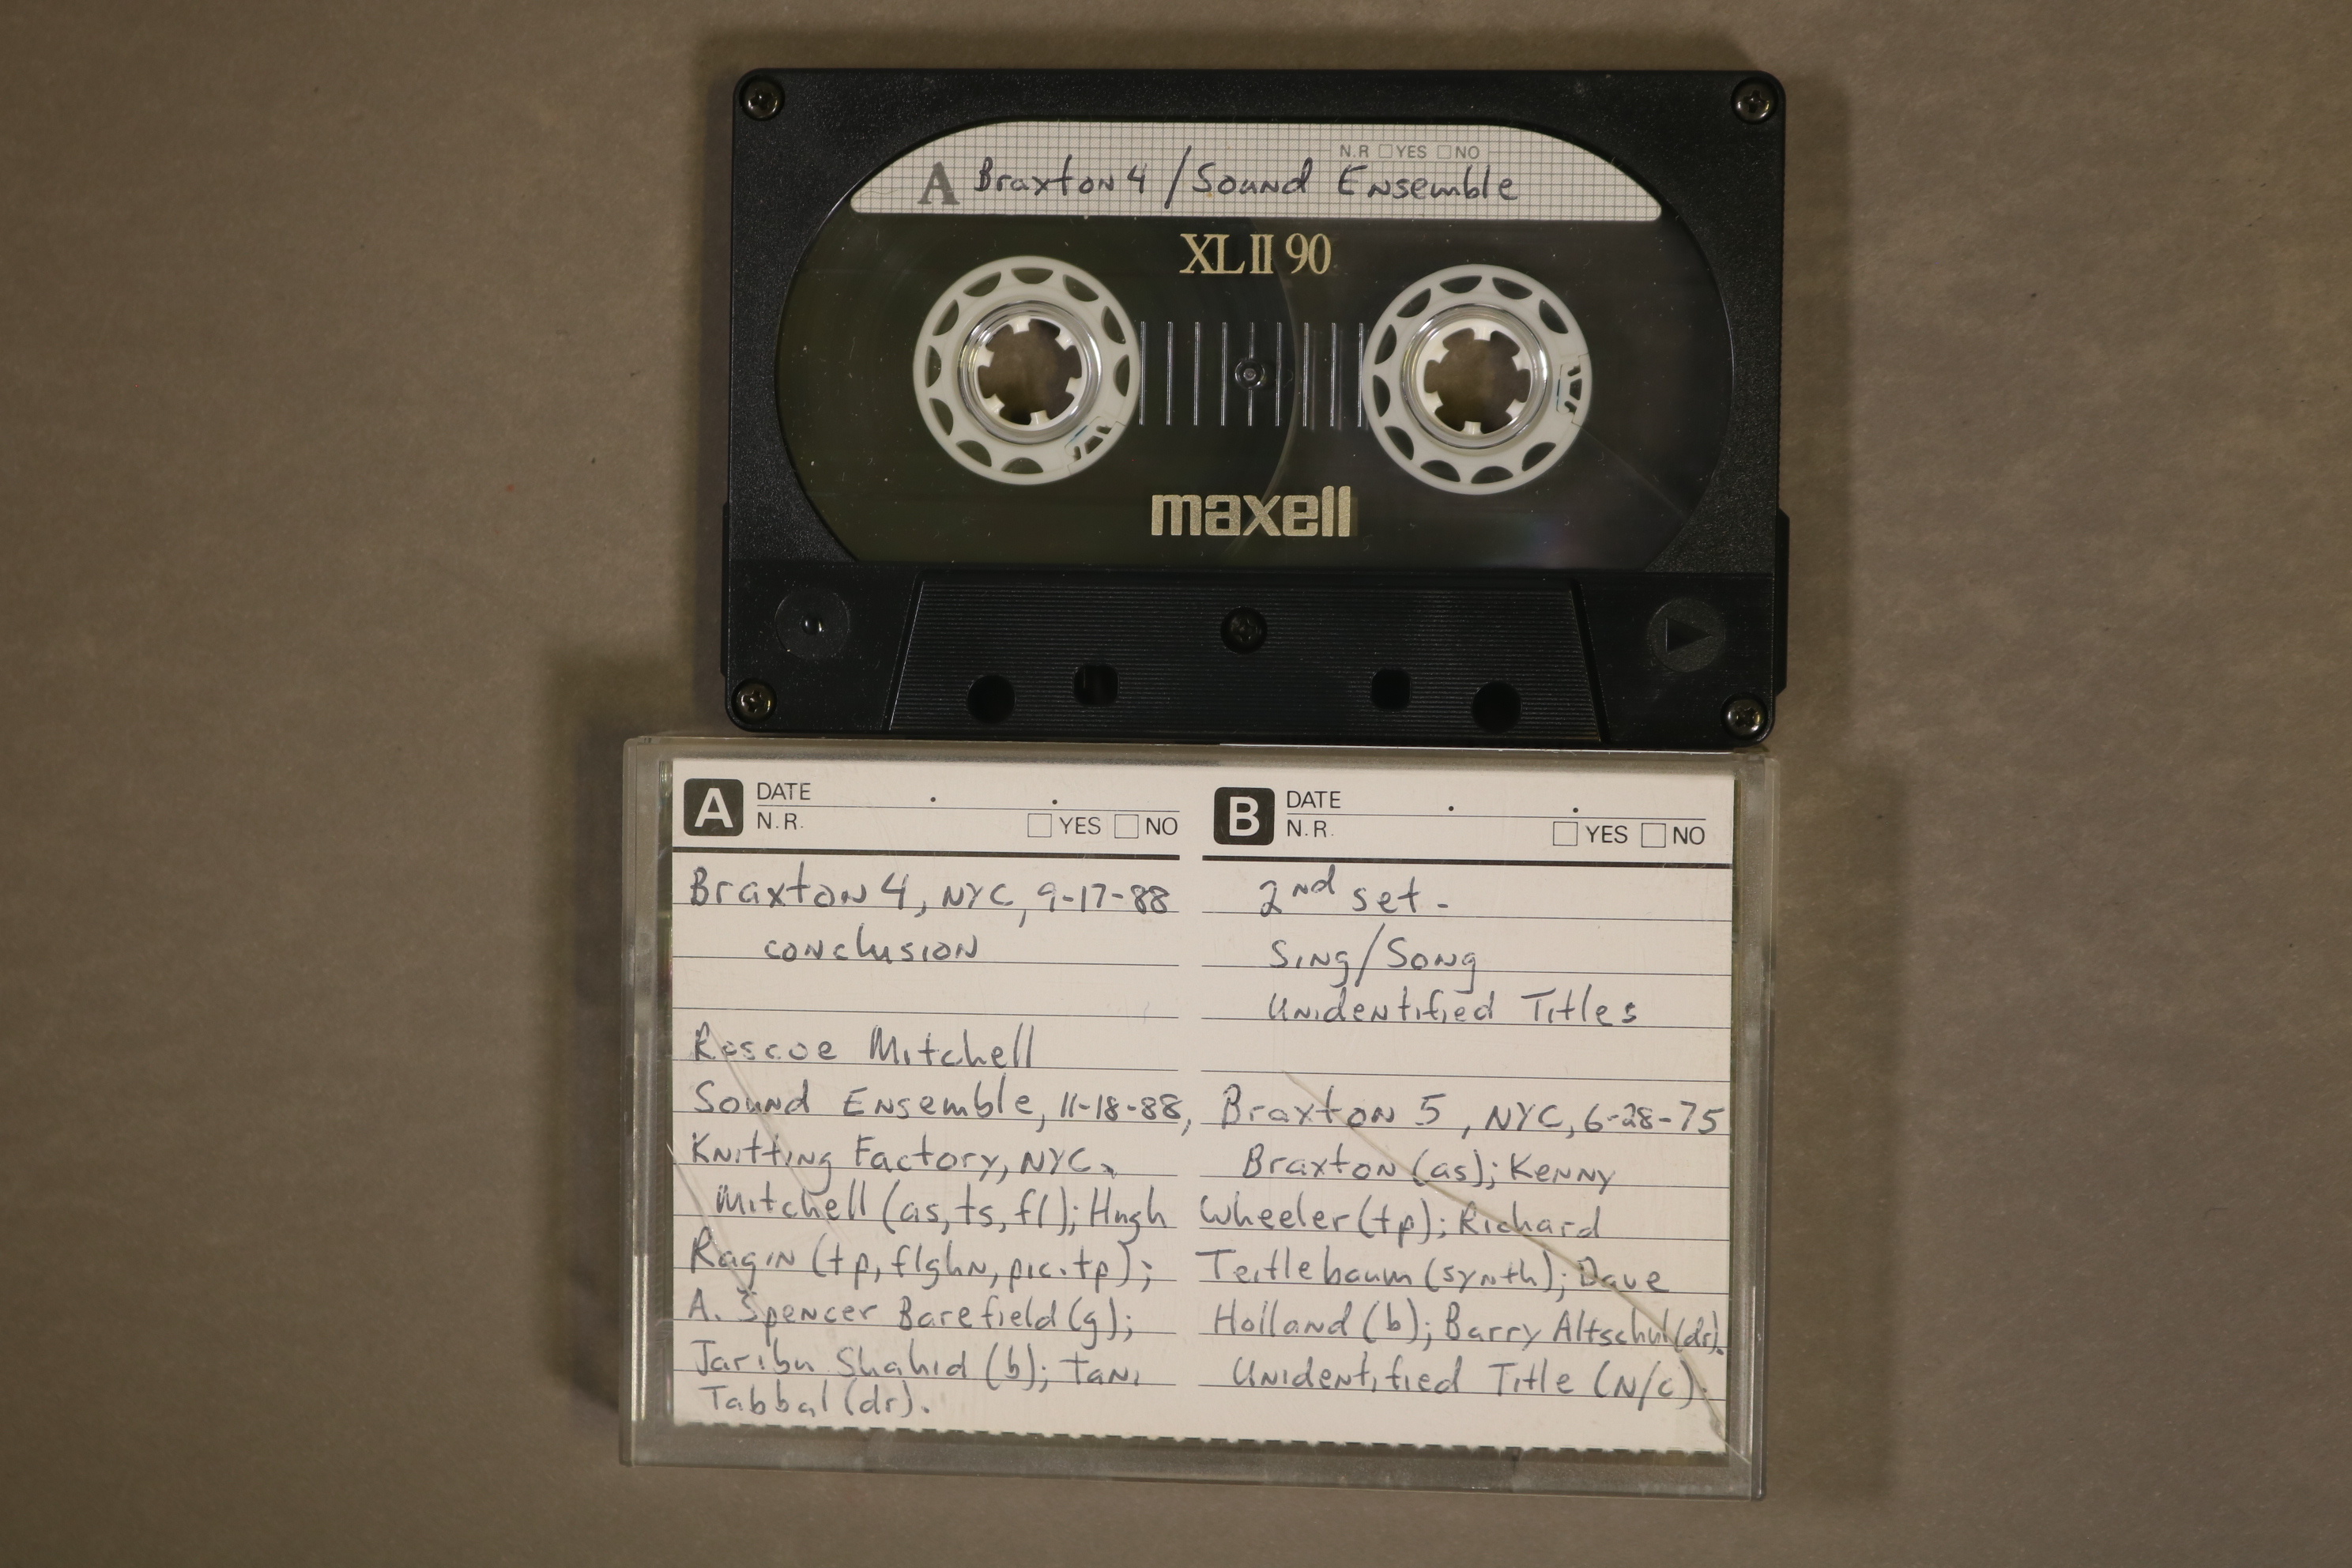 N.R □YES □NO
A Braxton 4 / Sound Ensemble
XL II 90
maxell
A DATE . .
N.R. □ YES □ NO
Braxton 4, NYC, 9-17-88
conclusion
Roscoe Mitchell
Sound Ensemble, 11-18-88,
Knitting Factory, NYC.
Mitchell (as, ts, fl); Hugh
Ragin (tp, flghn, pic.tp);
A. Spencer Barefield (g);
Jaribu Shahid (b); Tani
Tabbal (dr).
B DATE . .
N.R. □ YES □ NO
2nd set -
Sing/Song
Unidentified Titles
Braxton 5, NYC, 6-28-75
Braxton (as); Kenny
Wheeler (tp); Richard
Teitlebaum (synth); Dave
Holland (b); Barry Altschul (dr).
Unidentified Title (N/C).